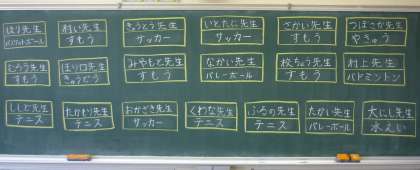 はり先生 村い先生 きゅうとう先生 いとたに先生 さかい先生 つぼさか先生
バスケットボール すもう サッカー サッカー すもう やきゅう
むろう先生 ほり口先生 みやもと先生 なかい先生 校ちょう先生 村上先生
すもう きゅうどう すもう バレーボール すもう バドミントン
ししど先生 たかもり先生 おかざき先生 くわな先生 ふろの先生 たかい先生 大にし先生
テニス テニス サッカー テニス テニス バレーボール 水えい